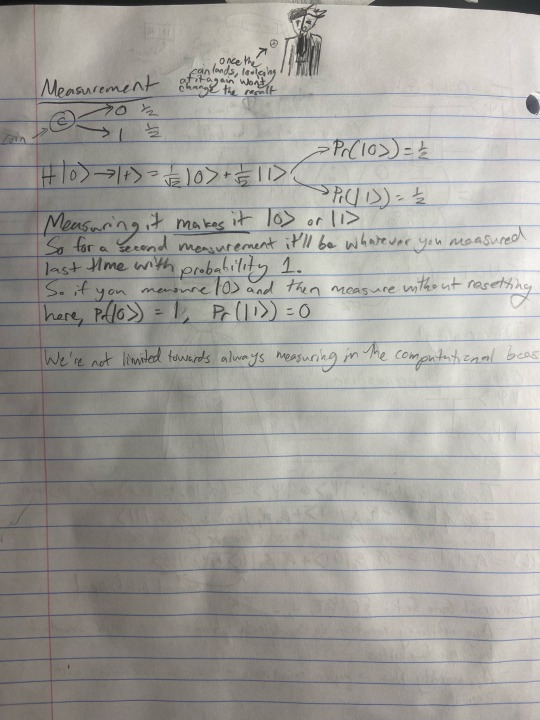 once the
coin lands, looking
at it again wont
change the result
Measurement
coin
C
0 ½
1 ½
H|0> → |+> = 1/√2 |0> + 1/√2 |1>
Pr(|0>) = ½
Pr(|1>) = ½
Measuring it makes it |0> or |1>
So for a second measurement it'll be whatever you measured
last time with probability 1.
So if you measure |0> and then measure without resetting
here, Pr(|0>) = 1, Pr(|1>) = 0
We're not limited towards always measuring in the computational basis